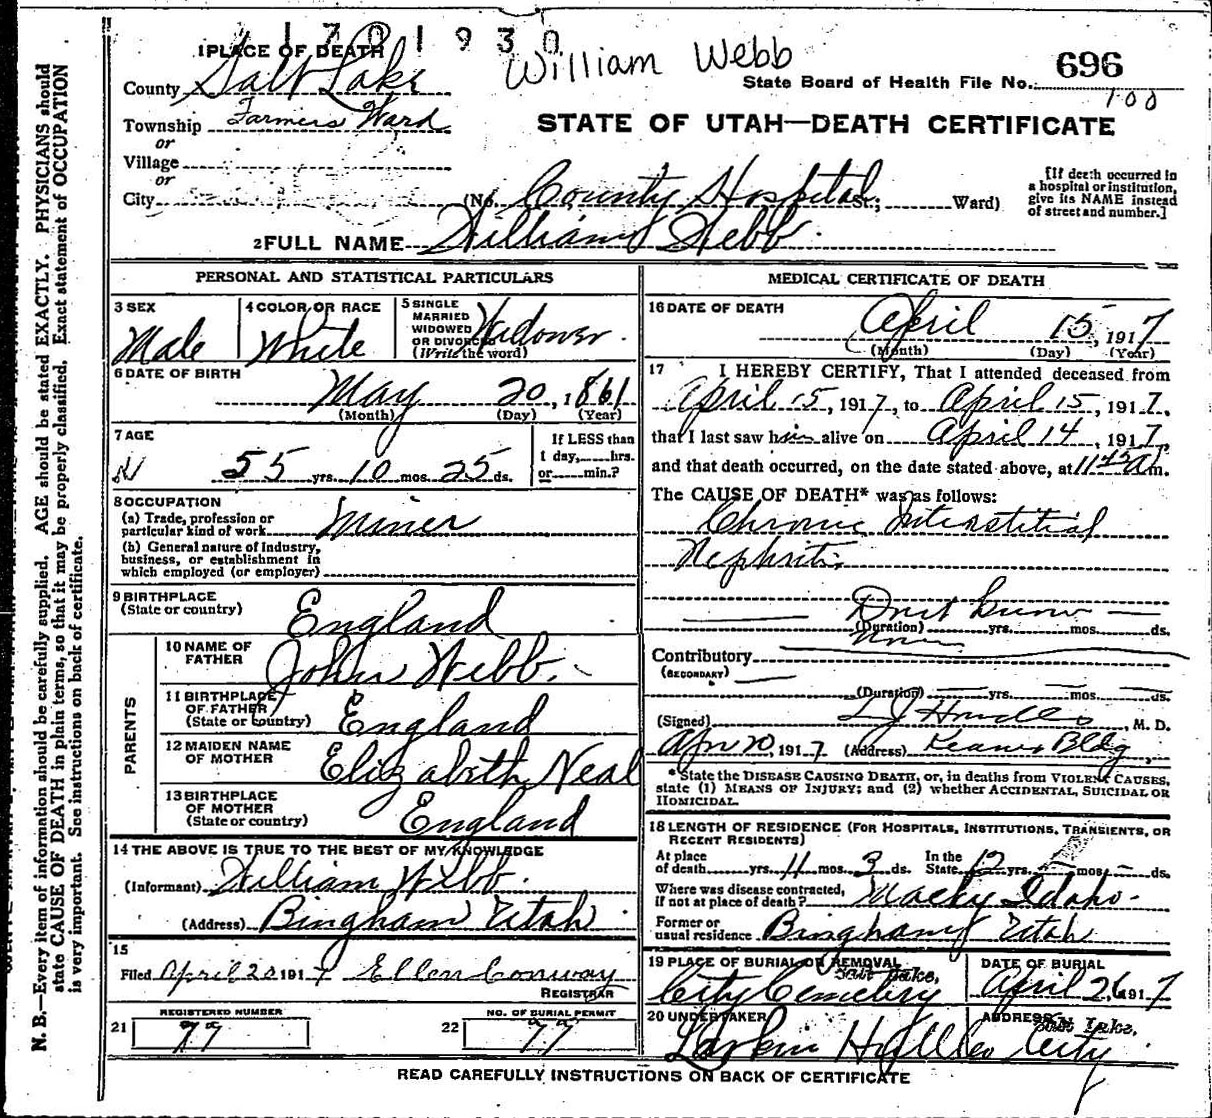 1 7 0 1 9 3 0
William Webb
696
State Board of Health File No.
100
1 PLACE OF DEATH
County Salt Lake
Township Farmers Ward
or
Village
or
City
STATE OF UTAH—DEATH CERTIFICATE
(No. County Hospital St; Ward)
[If death occurred in
a hospital or institution,
give its NAME instead
of street and number.]
2 FULL NAME William Webb
PERSONAL AND STATISTICAL PARTICULARS
3 SEX Male
4 COLOR OR RACE White
5 SINGLE
MARRIED
WIDOWED
OR DIVORCED
(Write the word) Widower
6 DATE OF BIRTH
May 20, 1861
(Month) (Day) (Year)
7 AGE
55 yrs. 10 mos. 25 ds.
If LESS than
1 day, hrs.
or min.?
8 OCCUPATION
(a) Trade, profession or
particular kind of work Miner
(b) General nature of Industry,
business, or establishment in
which employed (or employer)
9 BIRTHPLACE
(State or country) England
PARENTS
10 NAME OF
FATHER John Webb.
11 BIRTHPLACE
OF FATHER
(State or country) England
12 MAIDEN NAME
OF MOTHER Elizabeth Neal
13 BIRTHPLACE
OF MOTHER
(State or country) England
14 THE ABOVE IS TRUE TO THE BEST OF MY KNOWLEDGE
(Informant) William Webb.
(Address) Bingham Utah
15
Filed April 20 1917 Ellen Conway
REGISTRAR
REGISTERED NUMBER
21
NO. OF BURIAL PERMIT
22
MEDICAL CERTIFICATE OF DEATH
16 DATE OF DEATH
April 15, 1917
(Month) (Day) (Year)
17 I HEREBY CERTIFY, That I attended deceased from
April 15, 1917, to April 15, 1917.
that I last saw him alive on April 14, 1917,
and that death occurred, on the date stated above, at 1145 a m.
The CAUSE OF DEATH* was as follows:
Chronic Interstitial
Nephritis
Dont know
(Duration) yrs. mos. ds.
Contributory None
(SECONDARY)
(Duration) yrs. mos. ds.
(Signed) , M. D.
Apr 20, 1917 (Address) Kearns Bldg.
*State the DISEASE CAUSING DEATH, or, in deaths from VIOLENT CAUSES,
state (1) MEANS OF INJURY; and (2) whether ACCIDENTAL, SUICIDAL OR
HOMICIDAL.
18 LENGTH OF RESIDENCE (FOR HOSPITALS, INSTITUTIONS, TRANSIENTS, OR
RECENT RESIDENTS)
At place
of death yrs. 11 mos. 3 ds. In the
State 12 yrs. mos. ds.
Where was disease contracted,
if not at place of death? Macky Idaho
Former or
usual residence Bingham Utah
19 PLACE OF BURIAL OR REMOVAL
Salt Lake,
City Cemetery
DATE OF BURIAL
April 26, 1917
20 UNDERTAKER
ADDRESS
Salt Lake,
City
READ CAREFULLY INSTRUCTIONS ON BACK OF CERTIFICATE
N. B.—Every item of information should be carefully supplied. AGE should be stated EXACTLY. PHYSICIANS should
state CAUSE OF DEATH in plain terms, so that it may be properly classified. Exact statement of OCCUPATION
is very important. See instructions on back of certificate.